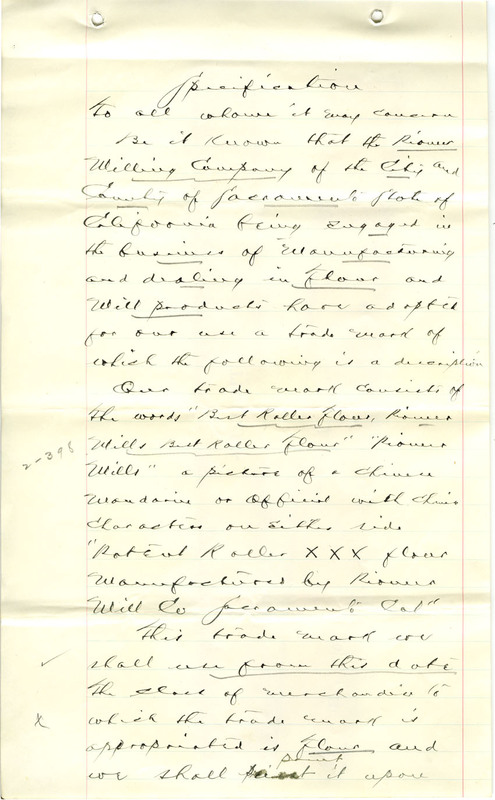 Specification
To all whome it may concern
Be it Known that the Pioneer
Milling Company of the City and
County of Sacramento State of
California being engaged in
the business of Manufacturing
and dealing in flour and
Mill products have adopted
for our use a trade mark of
which the following is a description
Our trade mark consists of
the words "Best Roller flour, Pioneer
Mills Best Roller flour" "Pioneer
Mills" a picture of a Chinese
Mandarin or Official with Chinese
Characters on either side
"Patent Roller XXX flour
Manufactured by Pioneer
Mill Co Sacramento Cal"
This trade mark we
shall use from this date
the class of merchandise to
which the trade mark is
appropriated is flour and
we shall print it upon
2-398